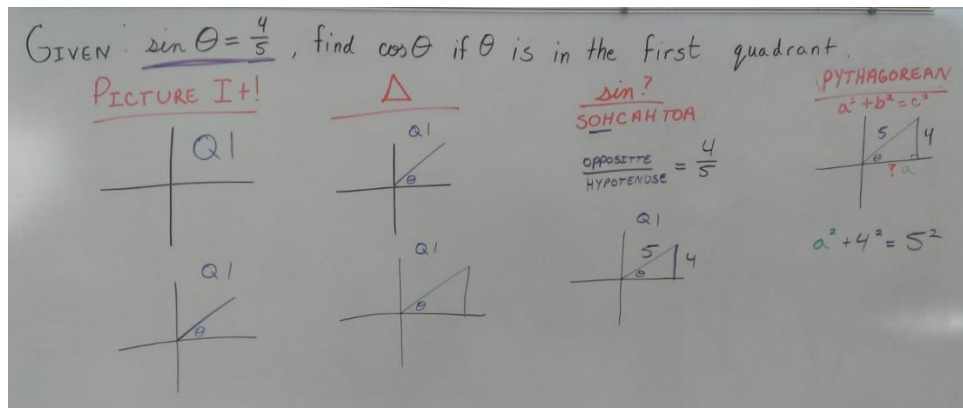 GIVEN: sin θ = 4/5, find cos θ if θ is in the first quadrant.
PICTURE It!
Q1
Q1
θ
Δ
Q1
θ
Q1
θ
sin?
SOHCAHTOA
OPPOSITTE/HYPOTENUSE = 4/5
Q1
5
4
θ
PYTHAGOREAN
a² + b² = c²
5
4
θ
? a
a² + 4² = 5²